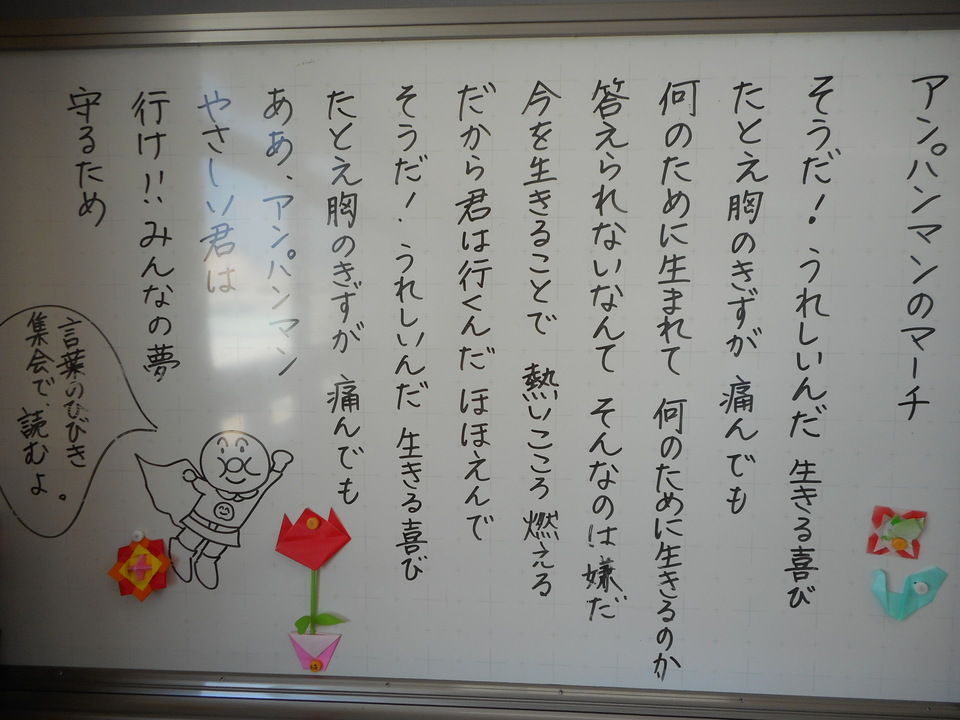 アンパンマンのマーチ
そうだ！うれしいんだ 生きる喜び
たとえ胸のきずが 痛んでも
何のために生まれて 何のために生きるのか
答えられないなんて そんなのは嫌だ
今を生きることで 熱いこころ 燃える
だから君は行くんだ ほほえんで
そうだ！うれしいんだ 生きる喜び
たとえ胸のきずが 痛んでも
ああ、アンパンマン
やさしい君は
行け!!みんなの夢
守るため
言葉のひびき
集会で、読むよ。